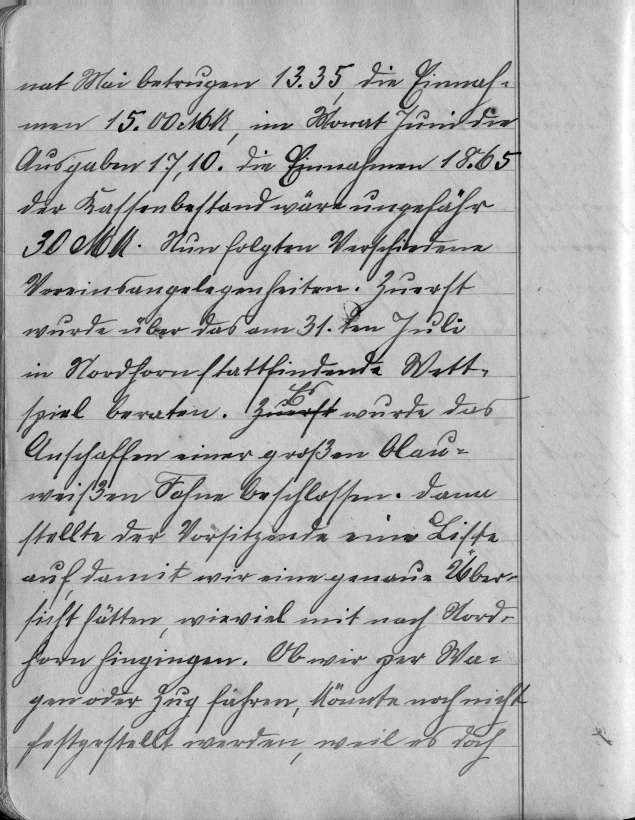 nat Mai betrugen 13.35, die Einnah-
men 15.00 MK, im Monat Juni die
Ausgaben 17,10. die Einnahmen 18.65
der Kassenbestand wäre ungefähr
30 MK. Nun folgten Verschiedene
Vereinsangelegenheiten. Zuerst
wurde über das am 31. ten Juli
in Nordhorn stattfindende Wett-
spiel beraten. Zuerst Es wurde das
Anschaffen einer großen blau-
weißen Fahne beschlossen. Dann
stellte der Vorsitzende eine Liste
auf, damit wir eine genaue Über-
sicht hätten, wieviel mit nach Nord-
horn hingingen. Ob wir per Wa-
gen oder Zug fahren, könnte noch nicht
festgestellt werden, weil es doch